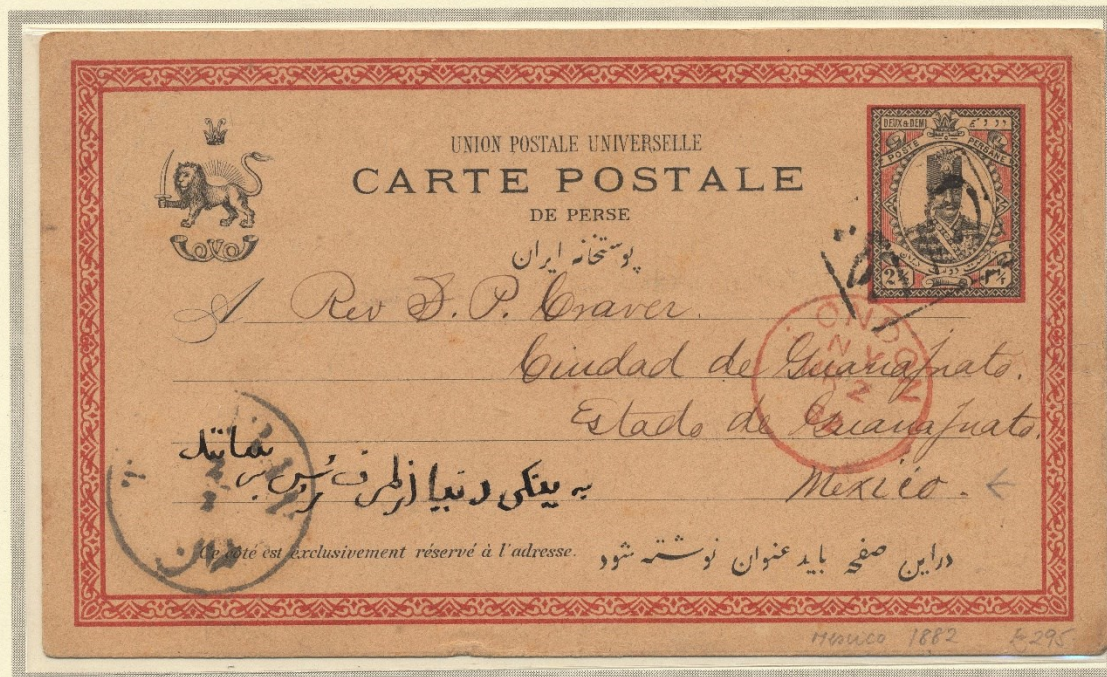 UNION POSTALE UNIVERSELLE
CARTE POSTALE
DE PERSE
پوستخانه ایران
DEUX & DEMI
POSTE PERSANE
2½
A Rev S. P. Craver.
Ciudad de Guanajuato.
Estado de Guanajuato.
Mexico.
LONDON
NY 2
به ینکی دنیا از طرف
طهران
Ce côté est exclusivement réservé à l'adresse.
دراین صفحه باید عنوان نوشته شود
Mexico 1882 £295